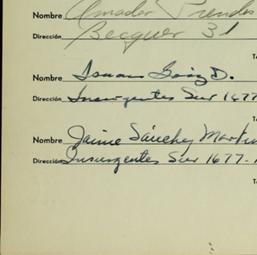 Nombre Amador Prendes
Dirección Becquer 31
T
Nombre D.
Dirección Insurgentes Sur 1677
T
Nombre Jaime Sánchez Martín
Dirección Insurgentes Sur 1677-
T